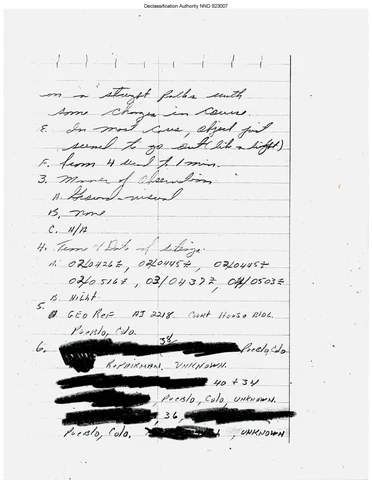 Declassification Authority NND 923007
in a straight path with
some changes in course.
E. In most cases, object just
seemed to go out (like a light)
F. from 4 sec to 1 min.
3. Manner of Observation
A. Ground-visual
B. none
C. N/A
4. Time & Date of sitings
A. 02/0426Z, 02/0445Z, 02/0445Z
02/0516Z, 03/0437Z, 04/0503Z
B. Night.
5.
GEO Ref AJ 2218 Court House Bldg.
Pueblo, Colo.
6. 38 Pueblo, Colo
Repairman, Unknown.
40 + 34
, Pueblo, Colo, unknown.
, 36,
Pueblo, Colo. , unknown